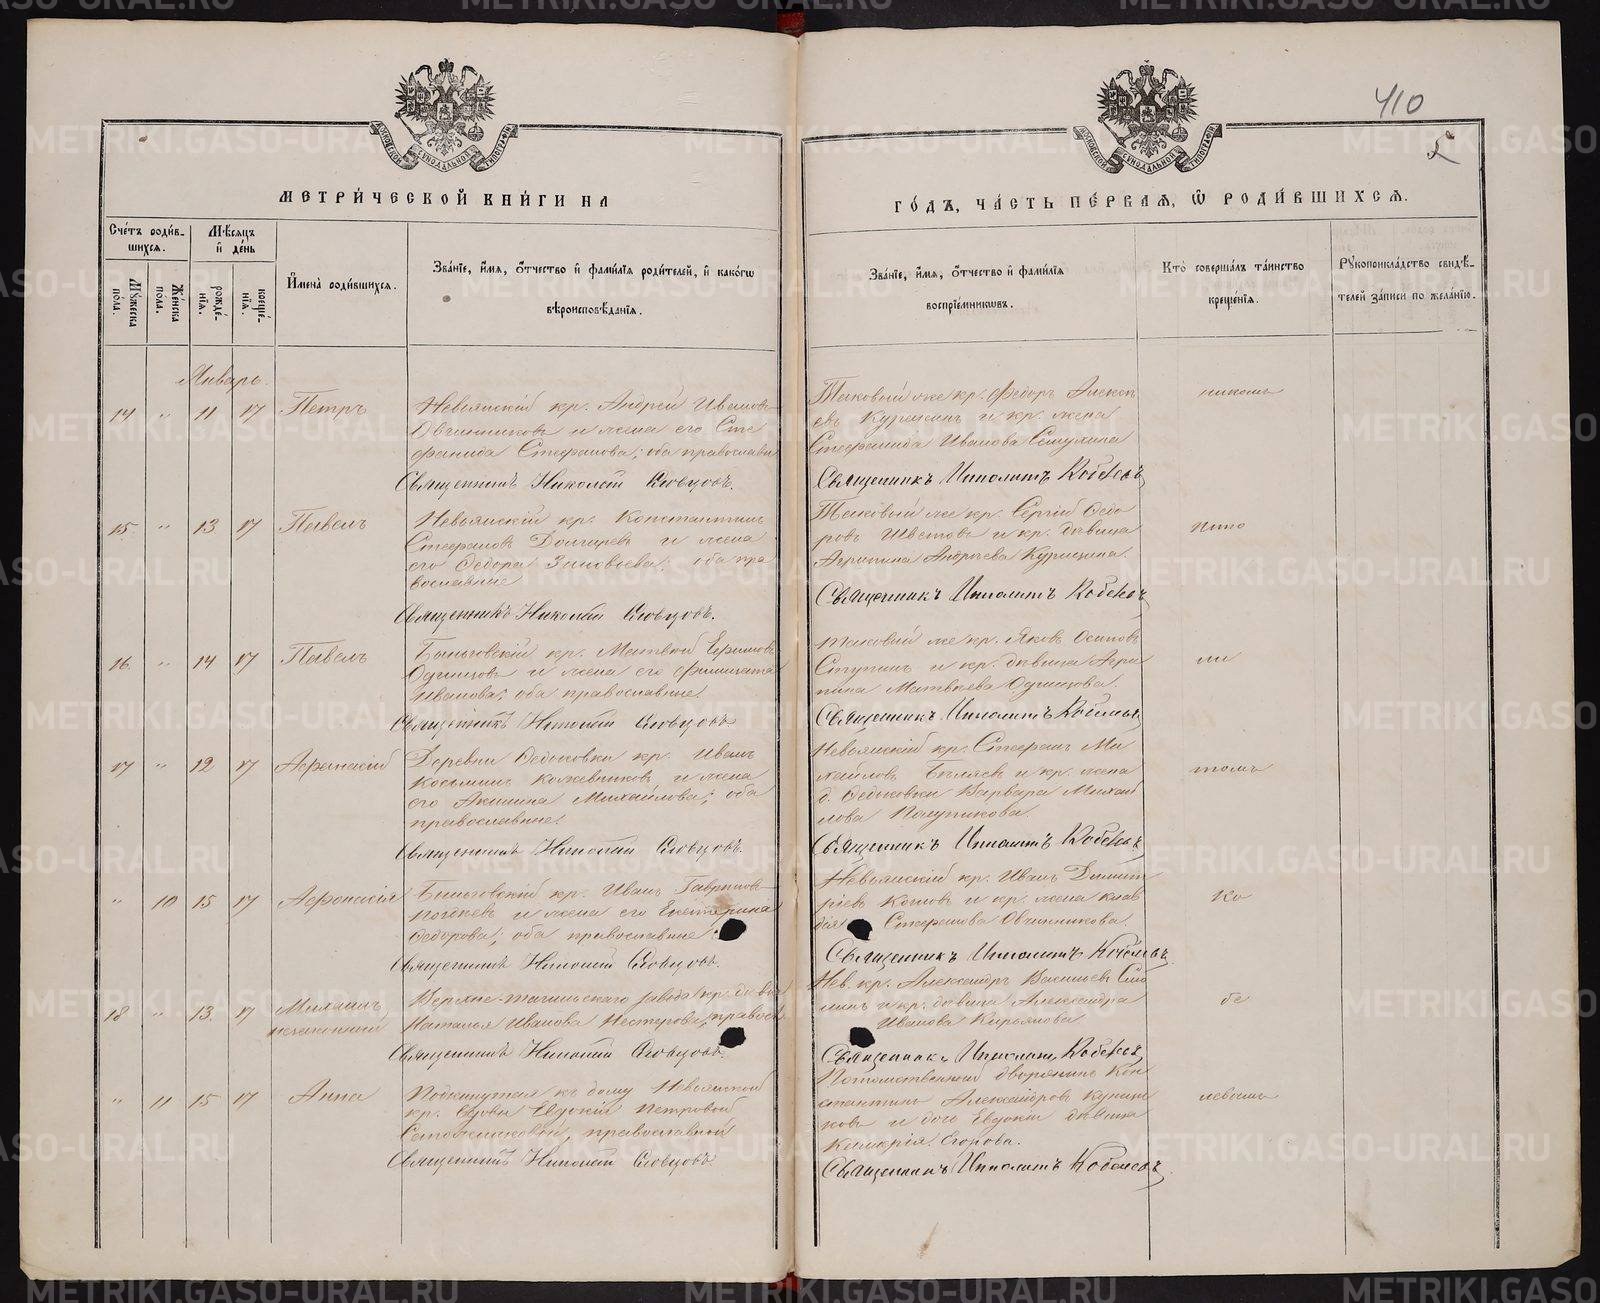 410
5
МЕТРИ́ЧЕСКОЙ КНИ́ГИ НА
ГО́ДЪ, ЧА́СТЬ ПЕ́РВАѦ, Ѡ҆ РОДИ́ВШИХСѦ.
Сче́тъ роди́в-
шихсѧ.
Мѣсѧцъ
и҆ де́нь
Мꙋ́жеска по́ла.
Же́нска по́ла.
рожде́-нїѧ.
креще́-нїѧ.
И҆мена̀ роди́вшихсѧ.
Зва́нїе, и҆́мѧ, ѻ҆́тчество и҆ фами́лїѧ роди́телей, и҆ како́гѡ
вѣроисповѣ́данїѧ.
Зва́нїе, и҆́мѧ, ѻ҆́тчество и҆ фами́лїѧ
воспрїе́мниковъ.
Кто̀ соверша́лъ та́инство
креще́нїѧ.
Рꙋкоприкла́дство свидѣ́-
телей за́писи по жела́нїю.
Январь.
14 " 11 17 Петръ
Невьянскій кр. Андрей Ивановъ
Овчинниковъ и жена его Сте
фанида Стефанова; оба православн
Священникъ Николай Словцовъ.
Таковый же кр. Федоръ Алексѣ
евъ Курицинъ и кр. жена
Стефанида Иванова
Священникъ Ипполитъ Кобелевъ
15 " 13 17 Павелъ
Невьянскій кр. Константинъ
Стефановъ и жена
его Федора Зиновьева; оба пра
вославные
Священникъ Николай Словцовъ.
Таковый же кр. Сергій Федо
ровъ Шветовъ и кр. дѣвица
Агрипина Андреева Курицина.
Священникъ Ипполитъ Кобелевъ
16. " 14 17 Павелъ
Быньговскій кр. Матвѣй Ефимовъ
Одинцовъ и жена его Филицата
Иванова; оба православные.
Священникъ Николай Словцовъ
Таковый же кр. Яковъ Осиповъ
Ступинъ и кр. дѣвица Агри
пина Матвѣева Одинцова.
Священникъ Ипполитъ Кобелевъ
17 " 12 17 Афанасій
Деревни Федьковки кр. Иванъ
Косьминъ Кожевниковъ и жена
его Акилина Михайлова; оба
православные.
Священникъ Николай Словцовъ.
Невьянскій кр. Стефанъ Ми
хайловъ Бѣляевъ и кр. жена
д. Федьковки Варвара Михай
лова
Священникъ Ипполитъ Кобелевъ
" 10 15 17 Афонасія
Быньговскій кр. Иванъ Гавриловъ
и жена его Екатерина
Федорова; оба православные
Священникъ Николай Словцовъ.
Невьянскій кр. Иванъ Димит
ріевъ и кр. жена Клав
дія Стефанова Овчинникова.
Священникъ Ипполитъ Кобелевъ
18 " 13 17 Михаилъ,
незаконный
Верхне-Тагильскаго завода кр. дѣви
Наталья Иванова Нестерова, правос.
Священникъ Николай Словцовъ.
Нев. кр. Александръ Васильевъ
и кр. дѣвица Александра
Иванова Кирьянова
Священникъ Ипполитъ Кобелевъ
" 11 15 17 Анна
Подкинутая къ дому Невьянской
кр. вдовы Евдокіи Петровой
православной
Священникъ Николай Словцовъ
Потомственный дворянинъ Кон
стантинъ Александровъ
и дочь Евдокіи дѣвица
Егорова.
Священникъ Ипполитъ Кобелевъ
ли
томъ
Ко
бе
левымъ
METRIKI.GASO-URAL.RU